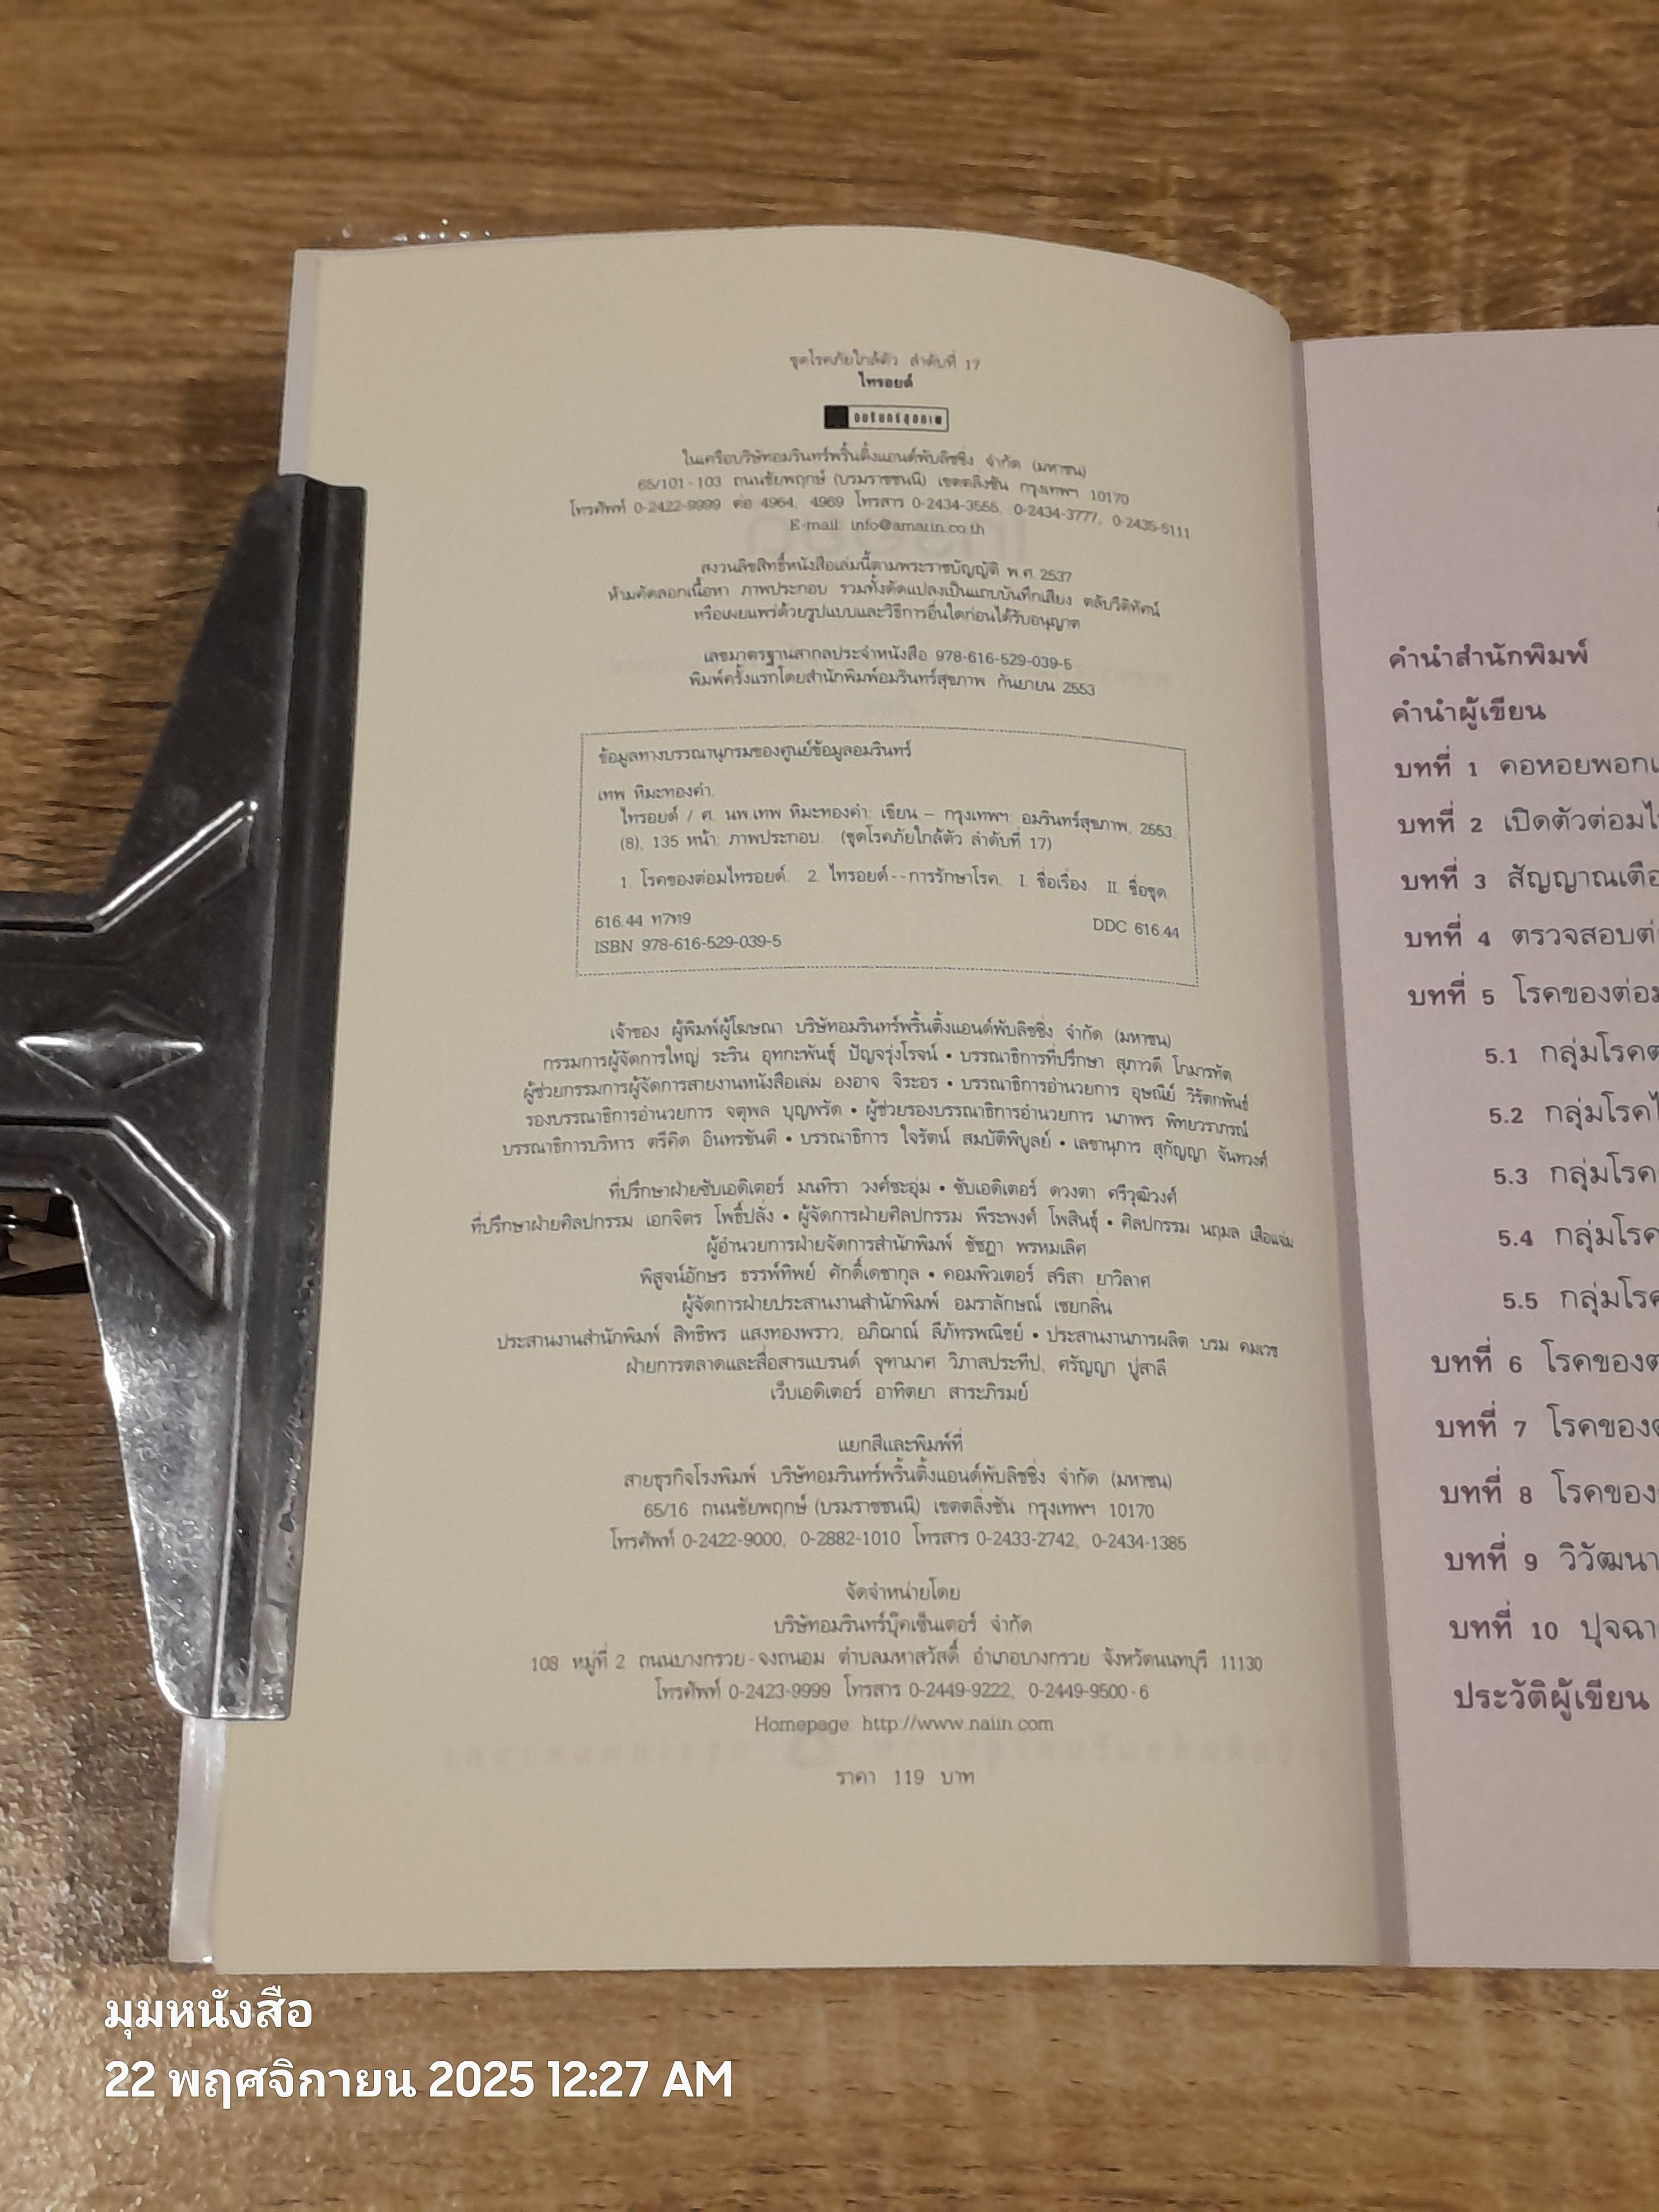 ชุดโรคภัยใกล้ตัว ลำดับที่ 17
ไทรอยด์
อมรินทร์สุขภาพ
ในเครือบริษัทอมรินทร์พริ้นติ้งแอนด์พับลิชชิ่ง จำกัด (มหาชน)
65/101-103 ถนนชัยพฤกษ์ (บรมราชชนนี) เขตตลิ่งชัน กรุงเทพฯ 10170
โทรศัพท์ 0-2422-9999 ต่อ 4964, 4969 โทรสาร 0-2434-3555, 0-2434-3777, 0-2435-5111
E-mail: info@amarin.co.th
สงวนลิขสิทธิ์หนังสือเล่มนี้ตามพระราชบัญญัติ พ.ศ. 2537
ห้ามคัดลอกเนื้อหา ภาพประกอบ รวมทั้งดัดแปลงเป็นแถบบันทึกเสียง ตลับวีดิทัศน์
หรือเผยแพร่ด้วยรูปแบบและวิธีการอื่นใดก่อนได้รับอนุญาต
เลขมาตรฐานสากลประจำหนังสือ 978-616-529-039-5
พิมพ์ครั้งแรกโดยสำนักพิมพ์อมรินทร์สุขภาพ กันยายน 2553
ข้อมูลทางบรรณานุกรมของศูนย์ข้อมูลอมรินทร์
เทพ หิมะทองคำ.
ไทรอยด์ / ศ. นพ.เทพ หิมะทองคำ: เขียน.-- กรุงเทพฯ: อมรินทร์สุขภาพ, 2553.
(8), 135 หน้า: ภาพประกอบ. (ชุดโรคภัยใกล้ตัว ลำดับที่ 17)
1. โรคของต่อมไทรอยด์. 2. ไทรอยด์--การรักษาโรค. I. ชื่อเรื่อง. II. ชื่อชุด.
616.44 ท7ท9 DDC 616.44
ISBN 978-616-529-039-5
เจ้าของ ผู้พิมพ์ผู้โฆษณา บริษัทอมรินทร์พริ้นติ้งแอนด์พับลิชชิ่ง จำกัด (มหาชน)
กรรมการผู้จัดการใหญ่ ระริน อุทกะพันธุ์ ปัญจรุ่งโรจน์ • บรรณาธิการที่ปรึกษา สุภาวดี โกมารทัต
ผู้ช่วยกรรมการผู้จัดการสายงานหนังสือเล่ม องอาจ จิระอร • บรรณาธิการอำนวยการ อุษณีย์ วิรัตกพันธ์
รองบรรณาธิการอำนวยการ จตุพล บุญพรัด • ผู้ช่วยรองบรรณาธิการอำนวยการ นภาพร พิทยวราภรณ์
บรรณาธิการบริหาร ตรีคิด อินทรขันตี • บรรณาธิการ ใจรัตน์ สมบัติพิบูลย์ • เลขานุการ สุกัญญา จันทวงศ์
ที่ปรึกษาฝ่ายซับเอดิเตอร์ มนทิรา วงศ์ชะอุ่ม • ซับเอดิเตอร์ ดวงตา ศรีวุฒิวงศ์
ที่ปรึกษาฝ่ายศิลปกรรม เอกจิตร โพธิ์ปลั่ง • ผู้จัดการฝ่ายศิลปกรรม พีระพงศ์ โพสินธุ์ • ศิลปกรรม นฤมล เสือแจ่ม
ผู้อำนวยการฝ่ายจัดการสำนักพิมพ์ ชัชฎา พรหมเลิศ
พิสูจน์อักษร ธรรพ์ทิพย์ ศักดิ์เดชากุล • คอมพิวเตอร์ สริสา ยาวิลาศ
ผู้จัดการฝ่ายประสานงานสำนักพิมพ์ อมราลักษณ์ เชยกลิ่น
ประสานงานสำนักพิมพ์ สิทธิพร แสงทองพราว, อภิฌาณ์ ลีภัทรพณิชย์ • ประสานงานการผลิต บรม คมเวช
ฝ่ายการตลาดและสื่อสารแบรนด์ จุฑามาศ วิภาสประทีป, ศรัญญา ปู่สาลี
เว็บเอดิเตอร์ อาทิตยา สาระภิรมย์
แยกสีและพิมพ์ที่
สายธุรกิจโรงพิมพ์ บริษัทอมรินทร์พริ้นติ้งแอนด์พับลิชชิ่ง จำกัด (มหาชน)
65/16 ถนนชัยพฤกษ์ (บรมราชชนนี) เขตตลิ่งชัน กรุงเทพฯ 10170
โทรศัพท์ 0-2422-9000, 0-2882-1010 โทรสาร 0-2433-2742, 0-2434-1385
จัดจำหน่ายโดย
บริษัทอมรินทร์บุ๊คเซ็นเตอร์ จำกัด
108 หมู่ที่ 2 ถนนบางกรวย-จงถนอม ตำบลมหาสวัสดิ์ อำเภอบางกรวย จังหวัดนนทบุรี 11130
โทรศัพท์ 0-2423-9999 โทรสาร 0-2449-9222, 0-2449-9500-6
Homepage: http://www.naiin.com
ราคา 119 บาท
คำนำสำนักพิมพ์
คำนำผู้เขียน
บทที่ 1 คอหอยพอก
บทที่ 2 เปิดตัวต่อม
บทที่ 3 สัญญาณเตือ
บทที่ 4 ตรวจสอบต่
บทที่ 5 โรคของต่อม
5.1 กลุ่มโรคต
5.2 กลุ่มโรคไ
5.3 กลุ่มโรค
5.4 กลุ่มโรค
5.5 กลุ่มโรค
บทที่ 6 โรคของต
บทที่ 7 โรคของต
บทที่ 8 โรคของ
บทที่ 9 วิวัฒนา
บทที่ 10 ปุจฉา
ประวัติผู้เขียน
มุมหนังสือ
22 พฤศจิกายน 2025 12:27 AM